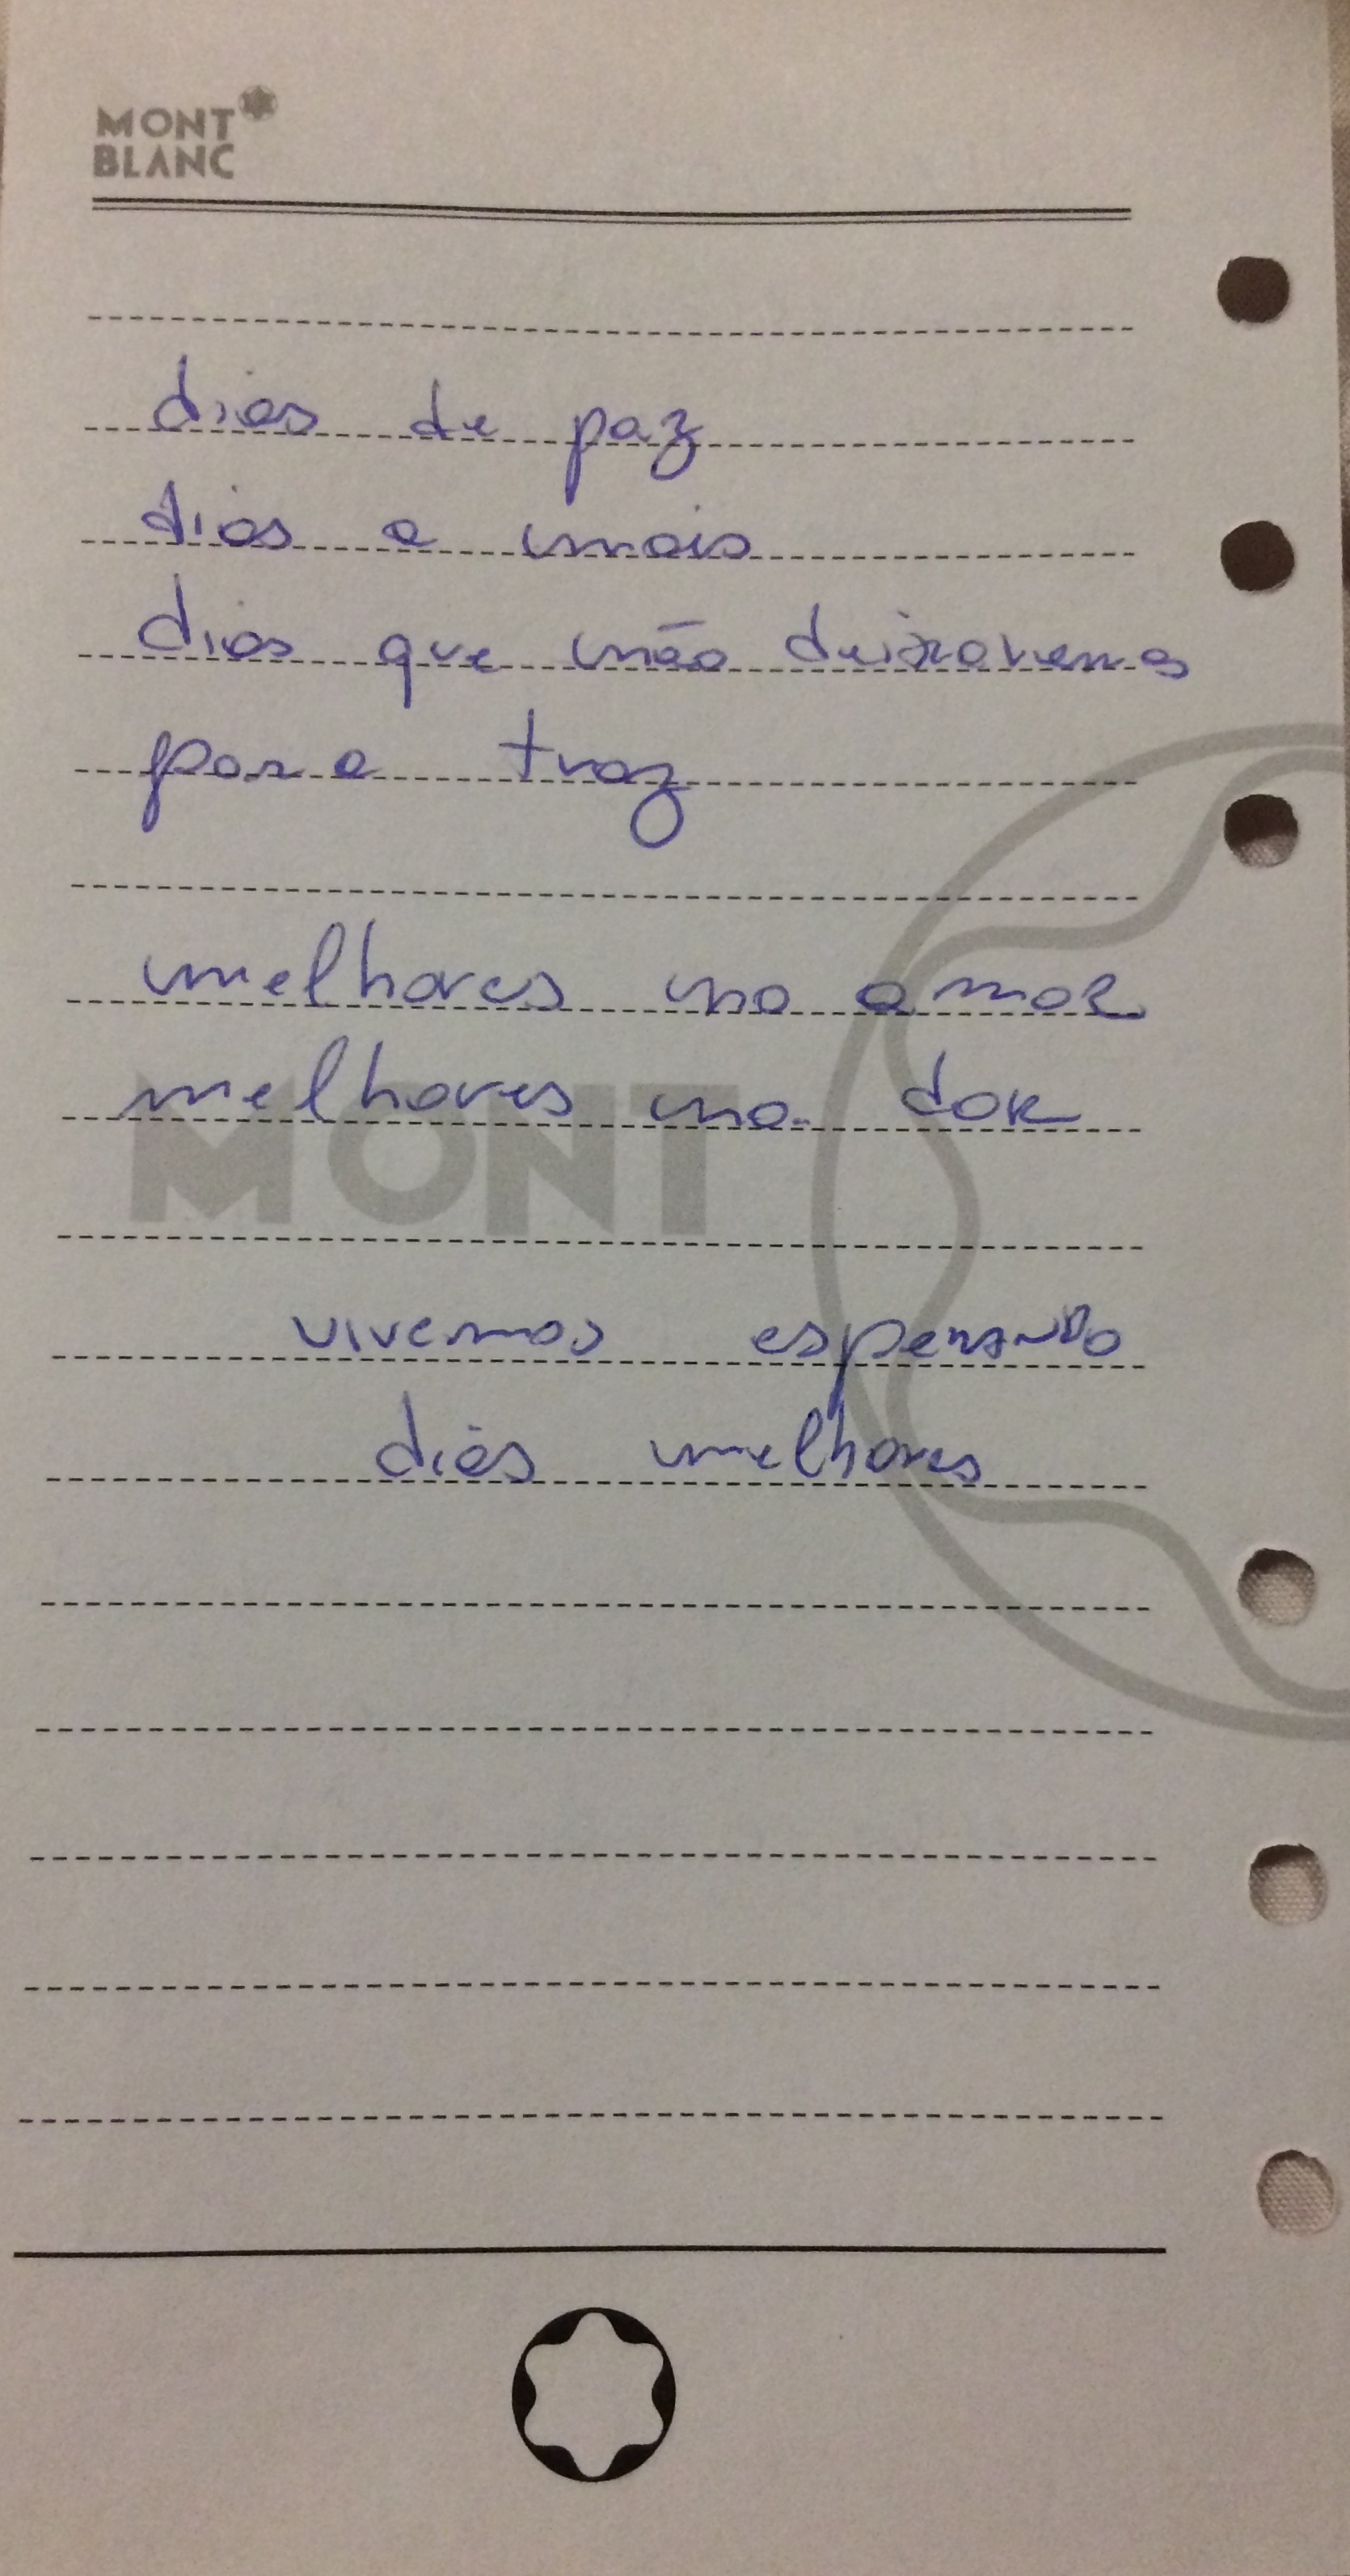 MONT
BLANC
dias de paz
dias a mais
dias que não deixaremos
para traz
melhores no amor
melhores na dor
MONT
vivemos esperando
dias melhores